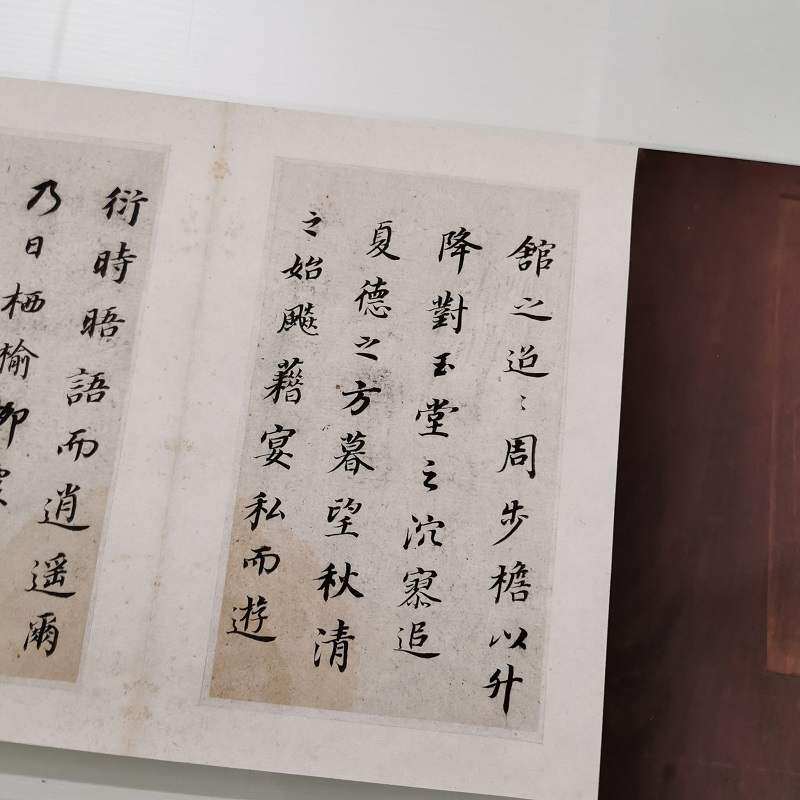 舘之迢〻周步檐以升
降對玉堂之泬寥追
夏德之方暮望秋清
之始飈藉宴私而遊
衍時晤語而逍遥爾
乃日栖榆